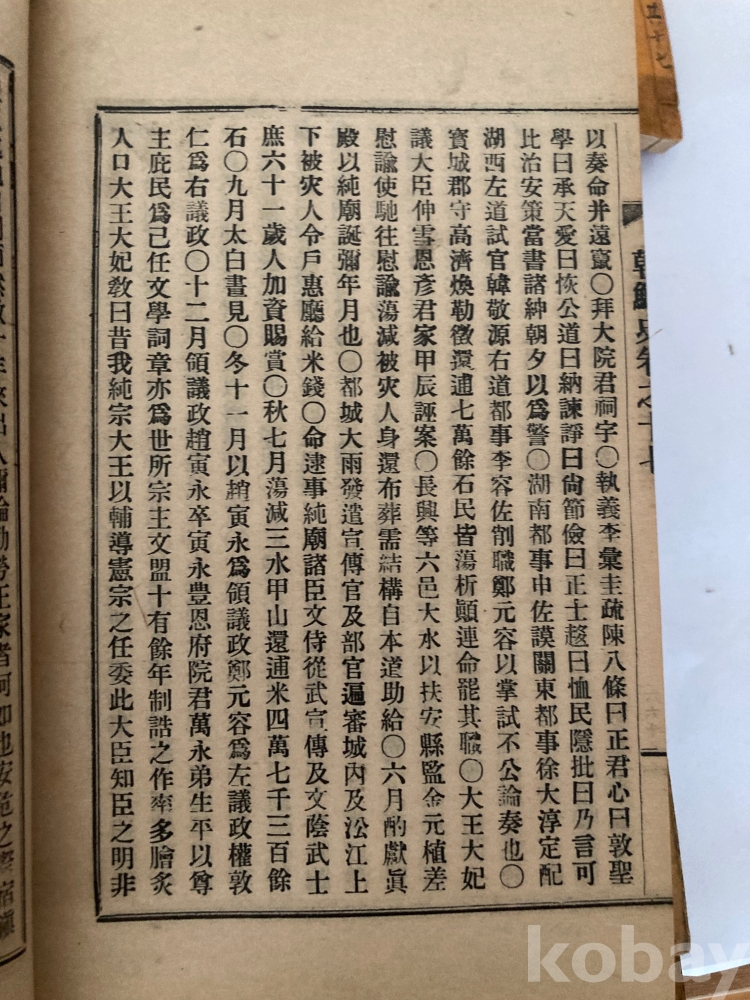 以奏命并遠竄〇拜大院君祠宇〇執義李彙圭疏陳八條曰正君心曰敦聖
學曰承天愛曰恢公道曰納諫諍曰尙節儉曰正士趍曰恤民隱批曰乃言可
比治安策當書諸紳朝夕以爲警〇湖南都事申佐謨關東都事徐大淳定配
湖西左道試官韓敬源右道都事李容佐削職鄭元容以掌試不公論奏也〇
寶城郡守高濟煥勒徵還逋七萬餘石民皆蕩析顚連命罷其職〇大王大妃
議大臣伸雪恩彥君家甲辰誣案〇長興等六邑大水以扶安縣監金元植差
慰諭使馳往慰諭蕩減被灾人身還布葬需結構自本道助給〇六月酌獻眞
殿以純廟誕彌年月也〇都城大雨發遣宣傳官及部官遍審城內及㳂江上
下被灾人令戶惠廳給米錢〇命逮事純廟諸臣文侍從武宣傳及文蔭武士
庶六十一歲人加資賜賞〇秋七月蕩減三水甲山還逋米四萬七千三百餘
石〇九月太白晝見〇冬十一月以趙寅永爲領議政鄭元容爲左議政權敦
仁爲右議政〇十二月領議政趙寅永卒寅永豊恩府院君萬永弟生平以尊
主庇民爲己任文學詞章亦爲世所宗主文盟十有餘年制誥之作率多膾炙
人口大王大妃敎曰昔我純宗大王以輔導憲宗之任委此大臣知臣之明非
朝鮮史卷之十七
kobay